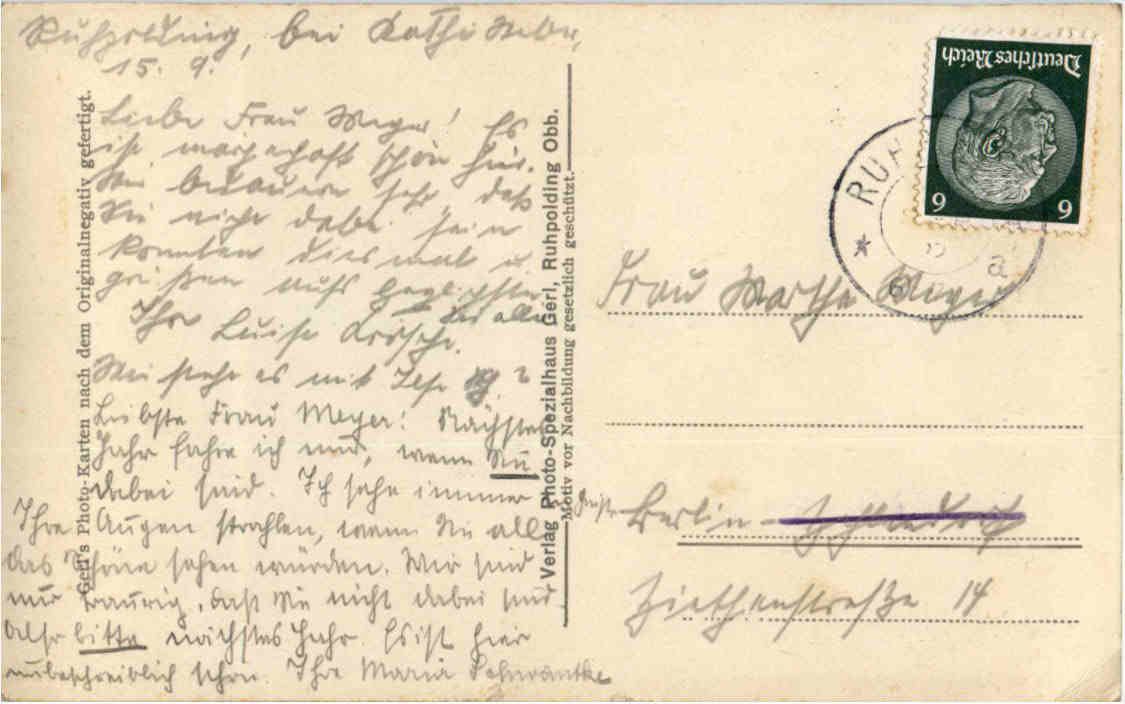 Ruhpolding, bei Käthi Weber,
15. 9.
Liebe Frau Meyer! Es
ist märchenhaft schön hier.
Wir bedauern sehr, daß
Sie nicht dabei sein
konnten diesmal u.
grüßen aufs herzlichste
Sie alle
Ihre Luise
Wie steht es mit
Liebste Frau Meyer! Nächstes
Jahr fahre ich nur, wenn Sie
dabei sind. Ich sehe immer
Ihre Augen strahlen, wenn Sie all
das Schöne sehen würden. Wir sind
nur traurig, daß Sie nicht dabei sind
also bitte nächstes Jahr. Es ist hier
unbeschreiblich schön. Ihre Maria Schwantke
Gerl's Photo-Karten nach dem Originalnegativ gefertigt.
Verlag Photo-Spezialhaus Gerl, Ruhpolding Obb.
Motiv vor Nachbildung gesetzlich geschützt.
Deutsches Reich
6 6
RUH
a
Frau Marthe Meyer
Berlin-
Ziethenstraße 14